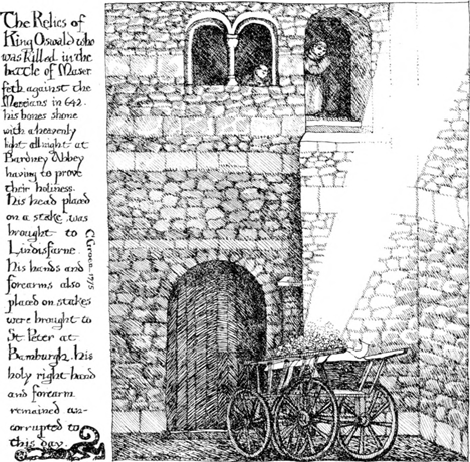 The Relics of
King Oswald who
was Killed in the
battle of Maser
feth against the
Mercians in 642.
his bones shone
with a heavenly
light all night at
Bardney Abbey
having to prove
their holiness.
His head placed
on a stake was
brought to
Lindisfarne.
His hands and
forearms also
placed on stakes
were brought to
St Peter at
Bamburgh. his
holy right hand
and forearm
remained un-
corrupted to
this day.